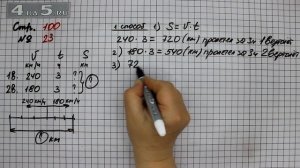 4АВ5.RU
Стр. 100
№ 23
V t S
км/ч ч км
1В. 240 3 ?
2В. 180 3 ?
?
240 км/ч 180 км/ч
? км
1 способ 1) S = V · t
240 · 3 = 720 (км) пролетел за 3ч 1 вертолёт
2) 180 · 3 = 540 (км) пролетел за 3ч 2 вертолёт
3) 72